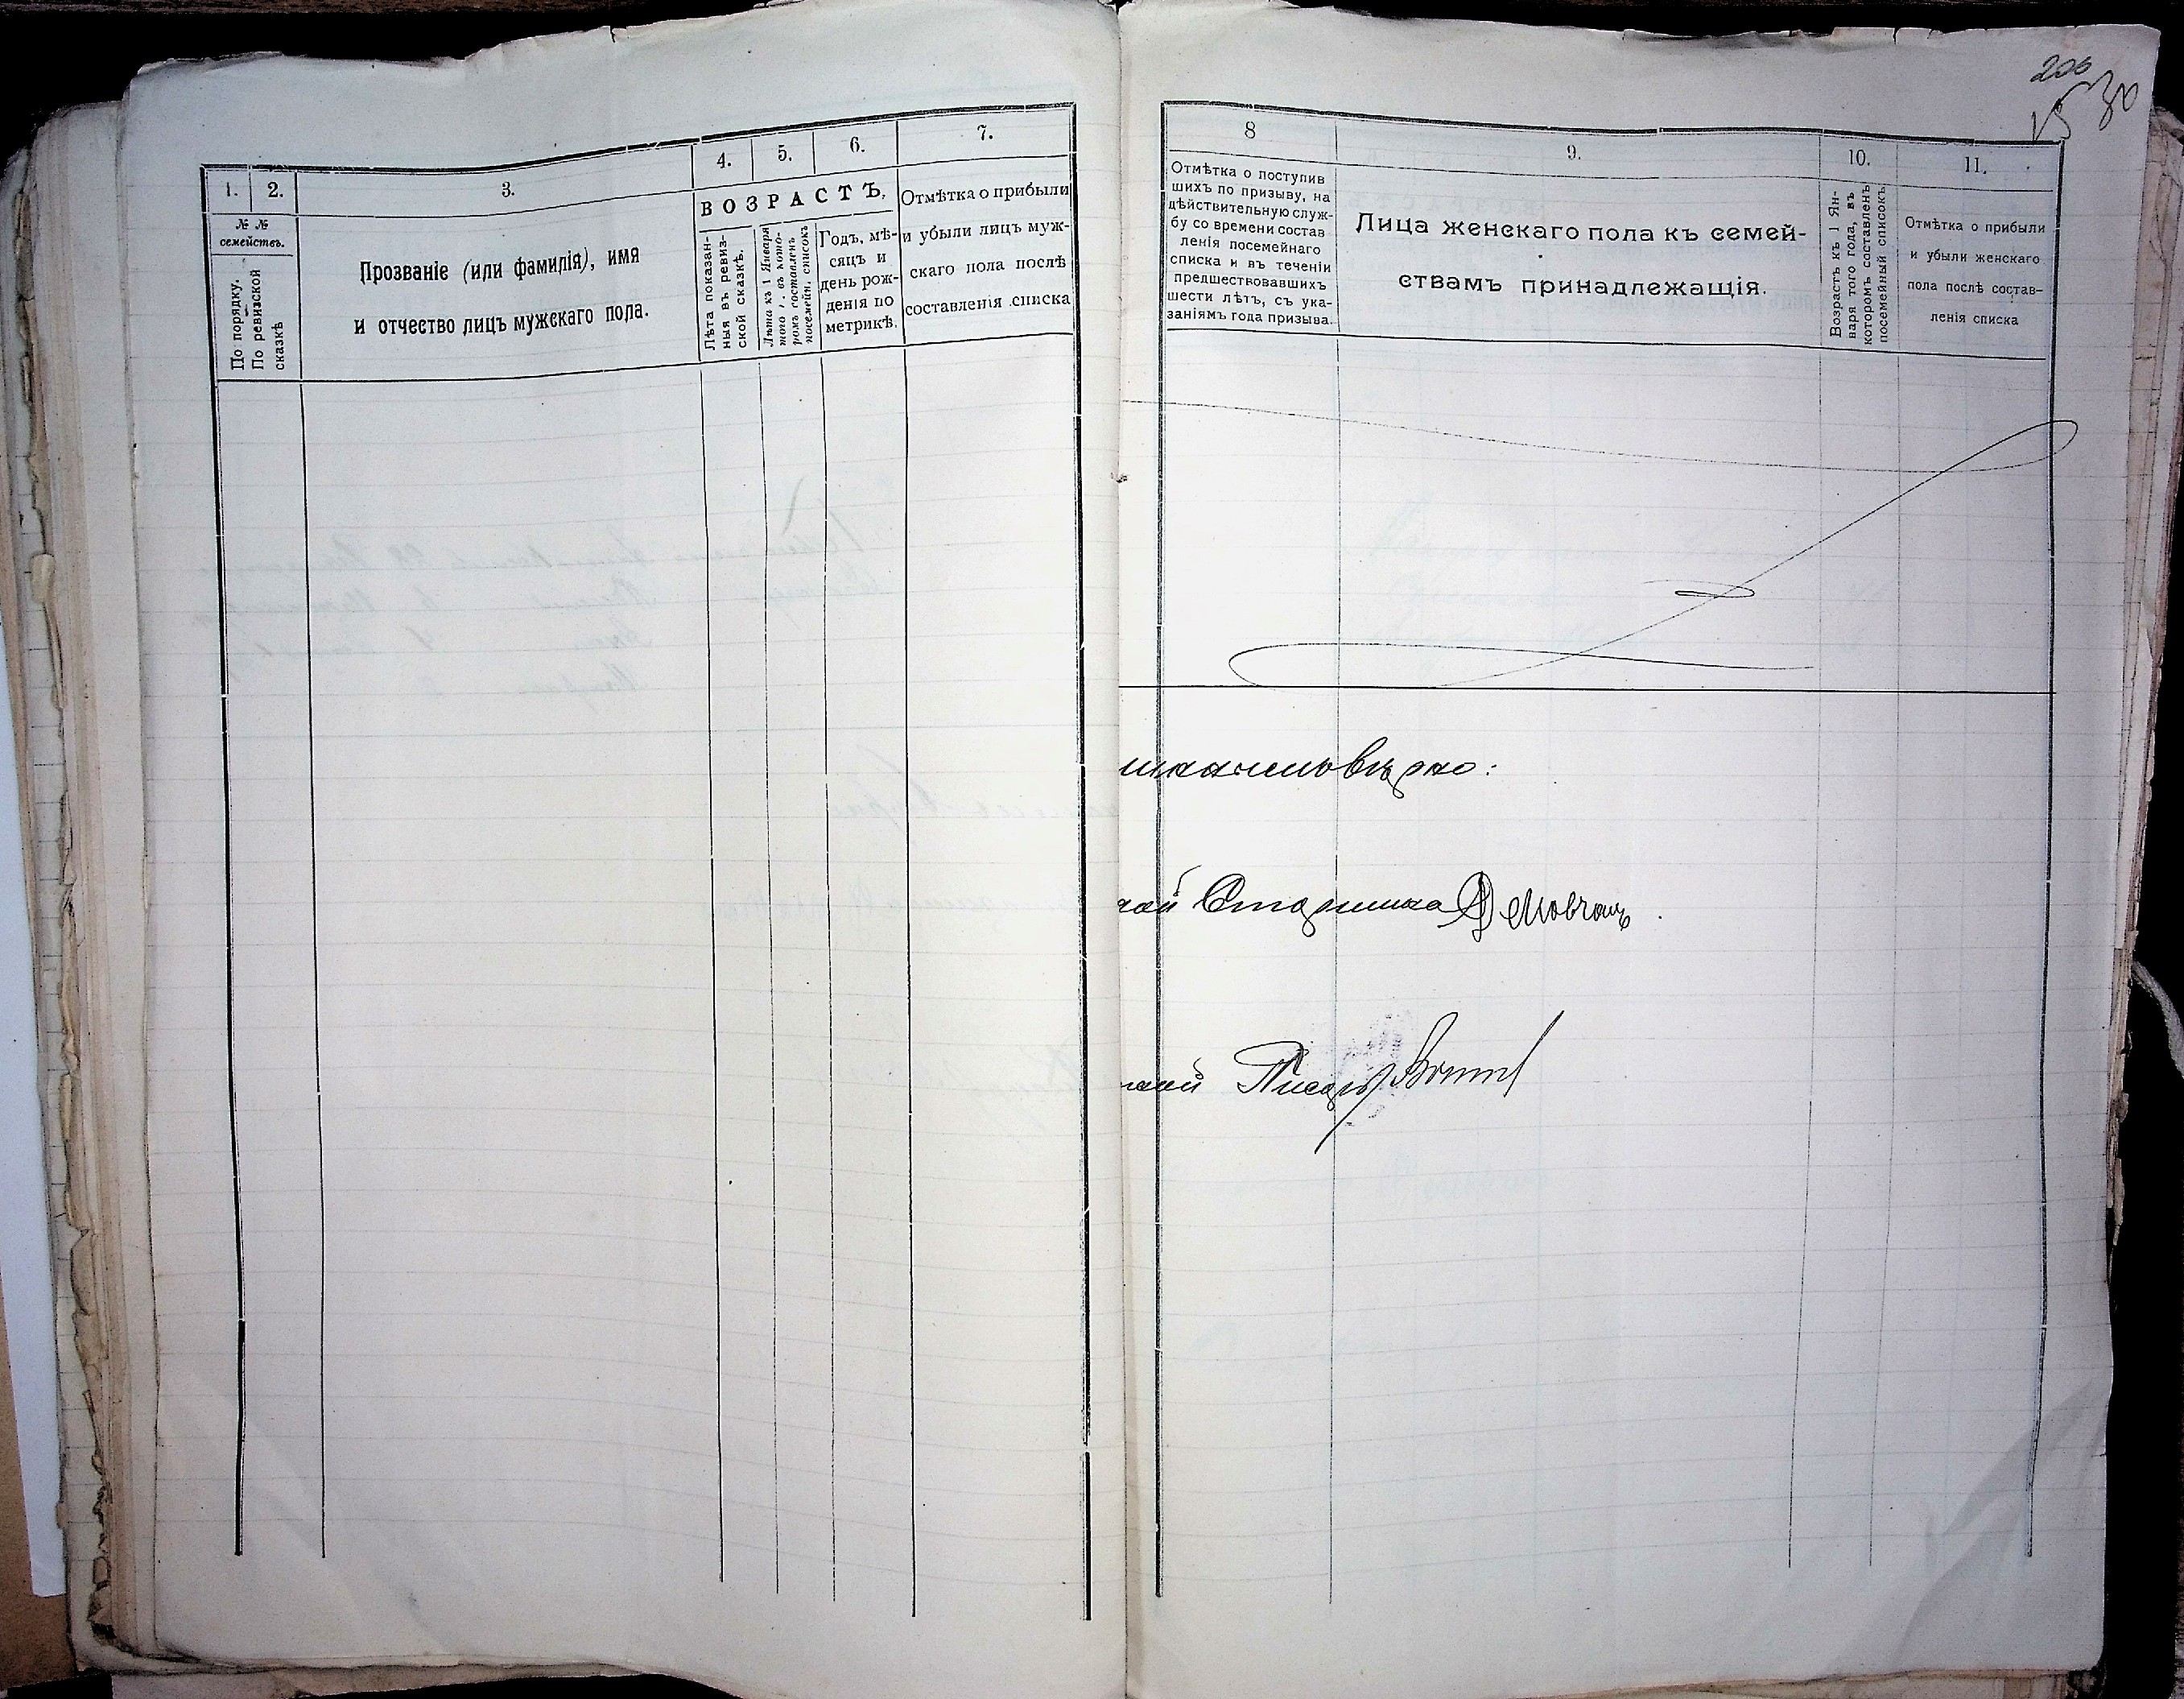 1. 2. 3. 4. 5. 6. 7.
№ № семействъ.
По порядку.
По ревизской сказкѣ
Прозваніе (или фамилія), имя
и отчество лицъ мужскаго пола.
ВОЗРАСТЪ,
Лѣта показан-
ныя въ ревиз-
ской сказкѣ.
Лѣта къ 1 Января
того г., въ кото-
ромъ составленъ
посемейн. списокъ
Годъ, мѣ-
сяцъ и
день рож-
денія по
метрикѣ.
Отмѣтка о прибыли
и убыли лицъ муж-
скаго пола послѣ
составленія списка
206
15 30
8 9. 10. 11.
Отмѣтка о поступив
шихъ по призыву, на
дѣйствительную служ-
бу со времени состав
ленія посемейнаго
списка и въ теченіи
предшествовавшихъ
шести лѣтъ, съ ука-
заніямъ года призыва.
Лица женскаго пола къ семей-
ствамъ принадлежащія.
Возрастъ къ 1 Ян-
наря того года, въ
которомъ составленъ
посемейный списокъ
Отмѣтка о прибыли
и убыли женскаго
пола послѣ состав-
ленія списка
вѣрно:
Старшина
Писарь